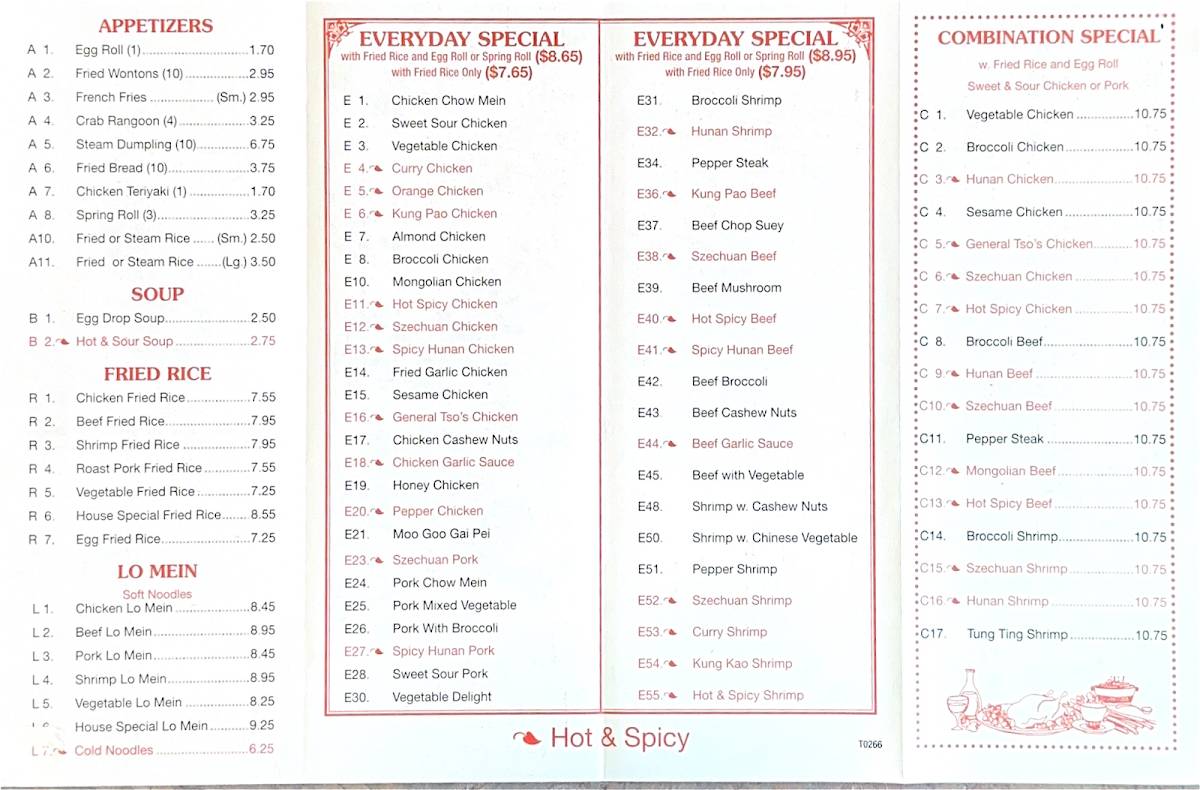 APPETIZERS
A 1. Egg Roll (1)..........................1.70
A 2. Fried Wontons (10)................2.95
A 3. French Fries ................ (Sm.) 2.95
A 4. Crab Rangoon (4)..................3.25
A 5. Steam Dumpling (10).............6.75
A 6. Fried Bread (10)....................3.75
A 7. Chicken Teriyaki (1) ...............1.70
A 8. Spring Roll (3).......................3.25
A10. Fried or Steam Rice ...... (Sm.) 2.50
A11. Fried or Steam Rice .......(Lg.) 3.50
SOUP
B 1. Egg Drop Soup.....................2.50
B 2. Hot & Sour Soup ..................2.75
FRIED RICE
R 1. Chicken Fried Rice................7.55
R 2. Beef Fried Rice.....................7.95
R 3. Shrimp Fried Rice .................7.95
R 4. Roast Pork Fried Rice ...........7.55
R 5. Vegetable Fried Rice .............7.25
R 6. House Special Fried Rice.......8.55
R 7. Egg Fried Rice......................7.25
LO MEIN
Soft Noodles
L 1. Chicken Lo Mein ...................8.45
L 2. Beef Lo Mein........................8.95
L 3. Pork Lo Mein........................8.45
L 4. Shrimp Lo Mein....................8.95
L 5. Vegetable Lo Mein ...............8.25
House Special Lo Mein..........9.25
L 7. Cold Noodles .......................6.25
EVERYDAY SPECIAL
with Fried Rice and Egg Roll or Spring Roll ($8.65)
with Fried Rice Only ($7.65)
E 1. Chicken Chow Mein
E 2. Sweet Sour Chicken
E 3. Vegetable Chicken
E 4. Curry Chicken
E 5. Orange Chicken
E 6. Kung Pao Chicken
E 7. Almond Chicken
E 8. Broccoli Chicken
E10. Mongolian Chicken
E11. Hot Spicy Chicken
E12. Szechuan Chicken
E13. Spicy Hunan Chicken
E14. Fried Garlic Chicken
E15. Sesame Chicken
E16. General Tso's Chicken
E17. Chicken Cashew Nuts
E18. Chicken Garlic Sauce
E19. Honey Chicken
E20. Pepper Chicken
E21. Moo Goo Gai Pei
E23. Szechuan Pork
E24. Pork Chow Mein
E25. Pork Mixed Vegetable
E26. Pork With Broccoli
E27. Spicy Hunan Pork
E28. Sweet Sour Pork
E30. Vegetable Delight
EVERYDAY SPECIAL
with Fried Rice and Egg Roll or Spring Roll ($8.95)
with Fried Rice Only ($7.95)
E31. Broccoli Shrimp
E32. Hunan Shrimp
E34. Pepper Steak
E36. Kung Pao Beef
E37. Beef Chop Suey
E38. Szechuan Beef
E39. Beef Mushroom
E40. Hot Spicy Beef
E41. Spicy Hunan Beef
E42. Beef Broccoli
E43 Beef Cashew Nuts
E44. Beef Garlic Sauce
E45. Beef with Vegetable
E48. Shrimp w. Cashew Nuts
E50. Shrimp w. Chinese Vegetable
E51. Pepper Shrimp
E52. Szechuan Shrimp
E53. Curry Shrimp
E54. Kung Kao Shrimp
E55. Hot & Spicy Shrimp
Hot & Spicy
T0266
COMBINATION SPECIAL
w. Fried Rice and Egg Roll
Sweet & Sour Chicken or Pork
C 1. Vegetable Chicken ..............10.75
C 2. Broccoli Chicken .................10.75
C 3. Hunan Chicken....................10.75
C 4. Sesame Chicken .................10.75
C 5. General Tso's Chicken..........10.75
C 6. Szechuan Chicken ...............10.75
C 7. Hot Spicy Chicken ...............10.75
C 8. Broccoli Beef.......................10.75
C 9. Hunan Beef .........................10.75
C10. Szechuan Beef ....................10.75
C11. Pepper Steak ......................10.75
C12. Mongolian Beef...................10.75
C13. Hot Spicy Beef....................10.75
C14. Broccoli Shrimp...................10.75
C15. Szechuan Shrimp ................10.75
C16. Hunan Shrimp .....................10.75
C17. Tung Ting Shrimp ................10.75